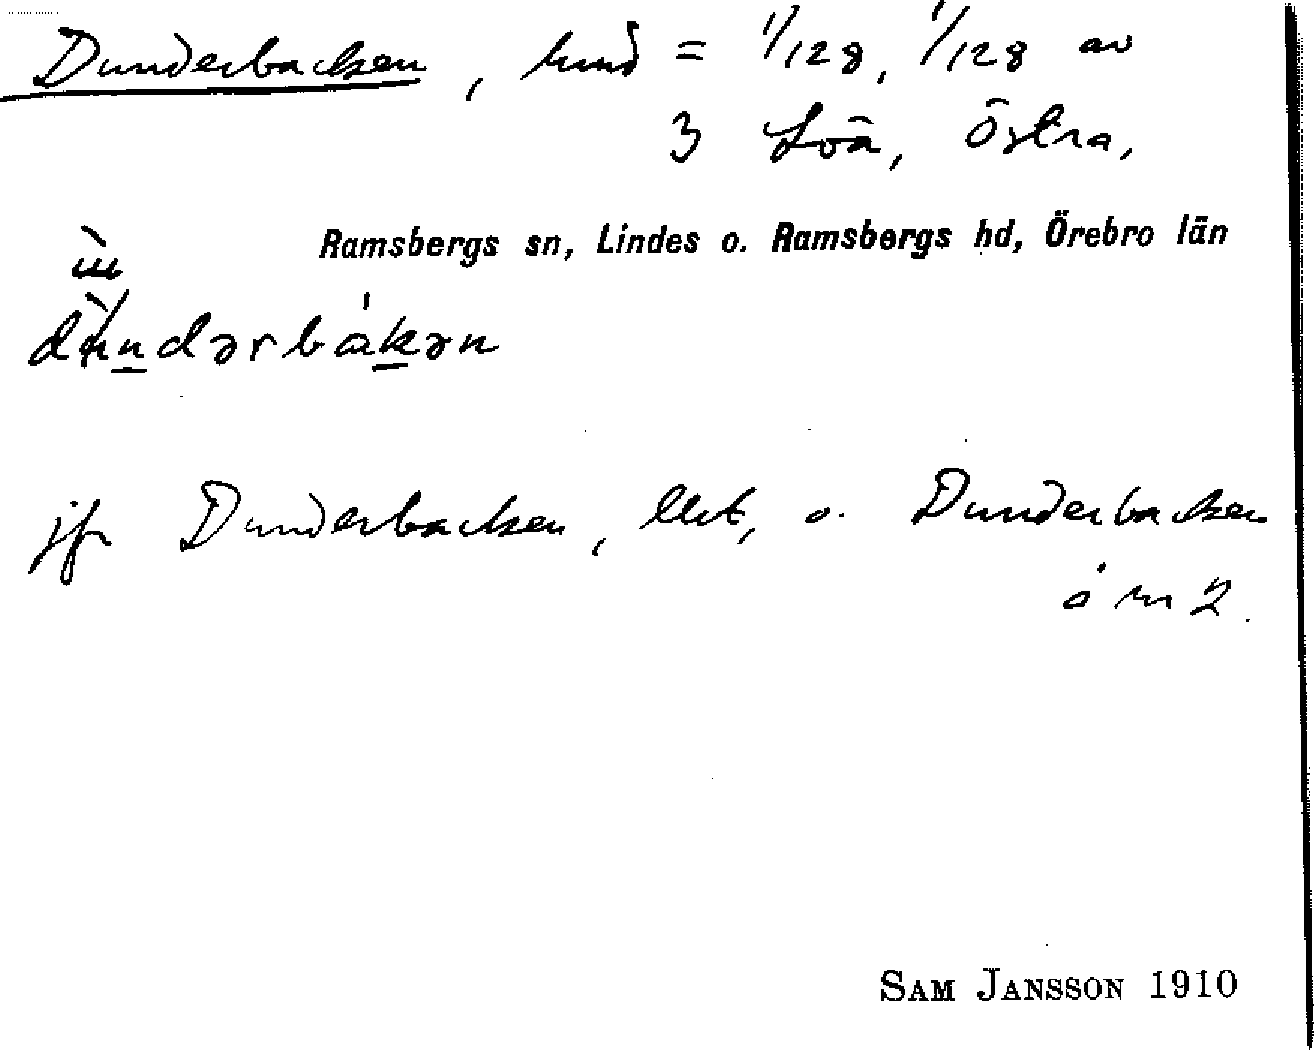 Dunderbacken, hmd = 1/128, 1/128 av
3 Löa, Östra,
Ramsbergs sn, Lindes o. Ramsbergs hd, Örebro län
dùndərbákən
jfr Dunderbacken, o. Dunderbacken
å nr 2.
SAM JANSSON 1910